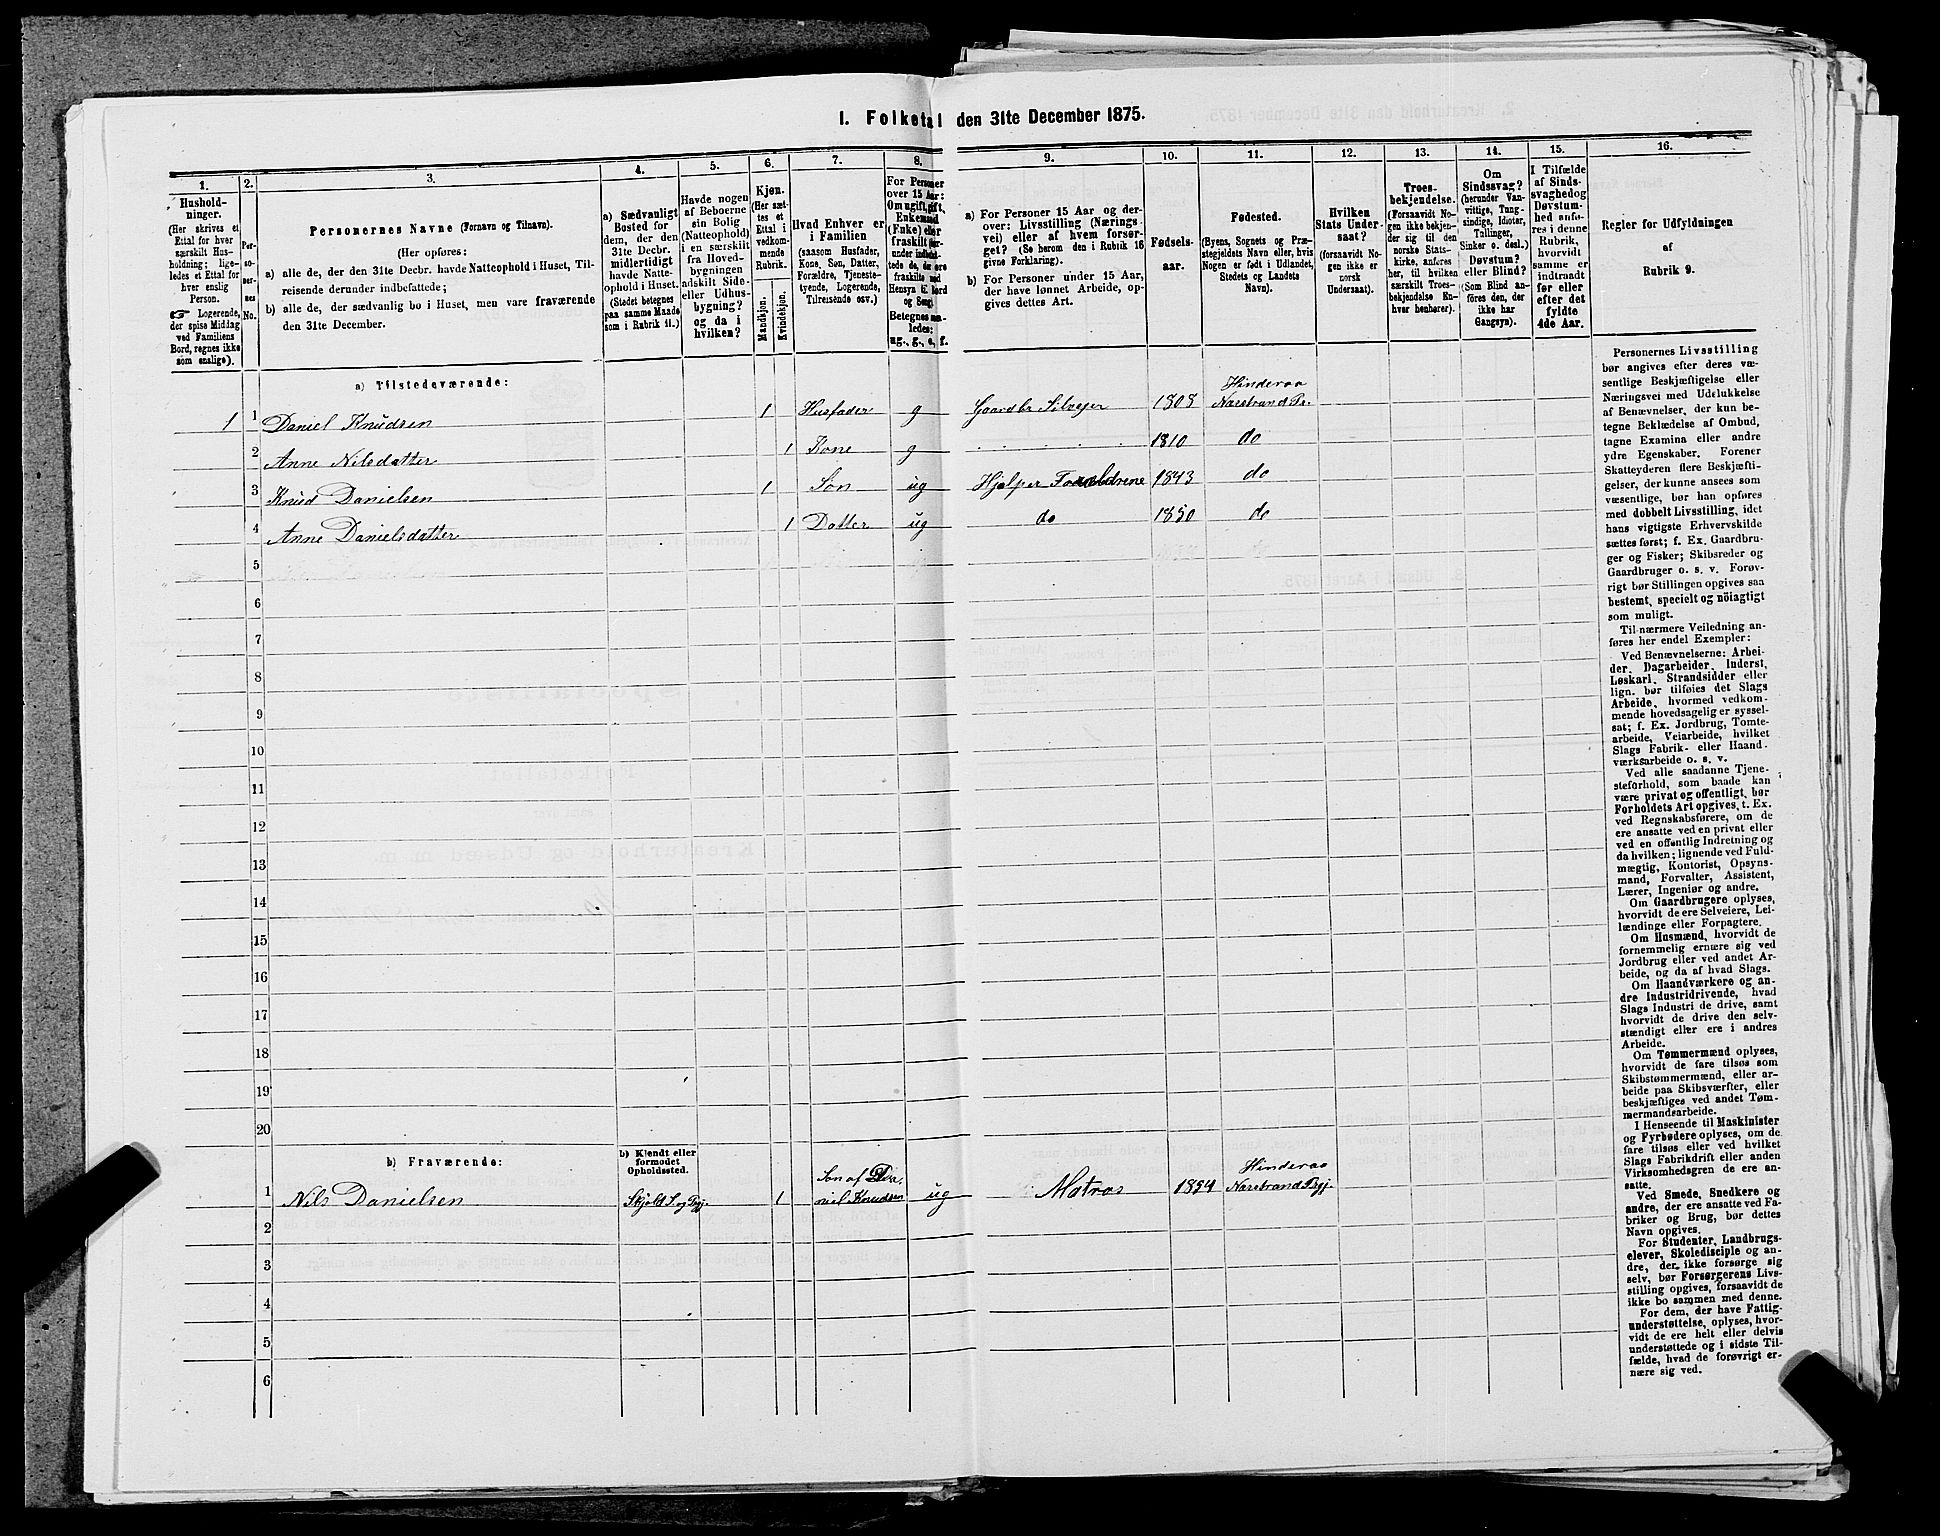 I. Folketal den 31te December 1875.
1.
2.
3.
4.
5.
6.
7.
8.
9.
10.
11.
12.
13.
14.
15.
16.
Hushold-
ninger.
(Her skrives et
Ettal for hver
særskilt Hus-
holdning; lige-
ledes et Ettal for
hver enslig
Person.
☞ Logerende,
der spise Middag
ved Familiens
Bord, regnes ikke
som enslige).
Per-
so-
ner-
nes
No.
Personernes Navne (Fornavn og Tilnavn).
(Her opføres:
a) alle de, der den 31te Decbr. havde Natteophold i Huset, Til-
reisende derunder indbefattede;
b) alle de, der sædvanlig bo i Huset, men vare fraværende
den 31te December.
a) Sædvanligt
Bosted for
dem, der den
31te Decbr.
midlertidigt
havde Natte-
ophold i Huset.
(Stedet betegnes
paa samme Maade
som i Rubrik 11.)
Havde nogen
af Beboerne
sin Bolig
(Natteophold)
i en særskilt
fra Hoved-
bygningen
adskilt Side-
eller Udhus-
bygning?
og da i
hvilken?
Kjøn.
(Her sæt-
tes et
Ettal i
vedkom-
mende
Rubrik.
Mandkjøn.
Kvindekjøn.
Hvad Enhver er
i Familien
(saasom Husfader,
Kone, Søn, Datter,
Forældre, Tjeneste-
tyende, Logerende,
Tilreisende osv.)
For Personer
over 15 Aar:
Om ugift, gift,
Enkemand
(Enke) eller
fraskilt
Betegnes saa-
ledes:
ug., g., e, f.
a) For Personer 15 Aar og der-
over: Livsstilling (Nærings-
vei) eller af hvem forsør-
get? (Se herom den i Rubrik 16
givne Forklaring).
b) For Personer under 15 Aar,
der have lønnet Arbeide, op-
gives dettes Art.
Fødsels-
aar.
Fødested.
(Byens, Sognets og Præ-
stegjeldets Navn eller, hvis
Nogen er født i Udlandet,
Stedets og Landets
Navn).
Hvilken
Stats Under-
saat?
(forsaavidt No-
gen ikke er
norsk
Undersaat).
Troes-
bekjendelse.
(Forsaavidt No-
gen ikke bekjen-
der sig til den
norske Stats-
kirke, anføres
her, til hvilken
særskilt Troes-
bekjendelse En-
hver henhører).
Om
Sindssvag?
(herunder Van-
vittige, Tung-
sindige, Idioter,
Tullinger,
Sinker o. desl.)
Døvstum?
eller Blind?
(Som Blind an-
føres den, der
ikke har
Gangsyn).
I Tilfælde
af Sinds-
svaghed og
Døvstum-
hed anfø-
res i denne
Rubrik,
hvorvidt
samme er
indtraadt
før eller
efter det
fyldte
4de Aar.
Regler for Udfyldningen
af
Rubrik 9.
a) Tilstedeværende:
1 1 Daniel Knudsen 1 Husfader g Gaardbr Selveier 1808 Hinderaa
Narstrand Pr.
2 Anne Nilsdatter 1 Kone g 1810 do
3 Knud Danielsen 1 Søn ug Hjælper Forældrene 1843 do
4 Anne Danielsdatter 1 Datter ug do 1850 do
5
6
7
8
9
10
11
12
13
14
15
16
17
18
19
20
b) Fraværende:
b) Kjendt eller
formodet
Opholdssted.
1 Nils Danielsen Skjold S. og Prgj. 1 Søn af Da-
niel Knudsen ug Matros 1854 Hinderaa
Narstrand Prgj.
2
3
4
5
6
Personernes Livsstilling
bør angives efter deres væ-
sentlige Beskjæftigelse eller
Næringsvei med Udelukkelse
af Benævnelser, der kun be-
tegne Beklædelse af Ombud,
tagne Examina eller andre
ydre Egenskaber. Forener
Skatteyderen flere Beskjæfti-
gelser, der kunne ansees som
væsentlige, bør han opføres
med dobbelt Livsstilling, idet
hans vigtigste Erhvervskilde
sættes først; f. Ex. Gaardbru-
ger og Fisker; Skibsreder og
Gaardbruger o. s. v. Forøv-
rigt bør Stillingen opgives saa
bestemt, specielt og nöiagtigt
som muligt.
Til nærmere Veiledning an-
føres her endel Exempler:
Ved Benævnelserne: Arbei-
der, Dagarbeider, Inderst,
Løskarl, Strandsidder eller
lign. bør tilføies det Slags
Arbeide, hvormed vedkom-
mende hovedsagelig er syssel-
sat; f. Ex. Jordbrug, Tomte-
arbeide, Veiarbeide, hvilket
Slags Fabrik- eller Haand-
værksarbeide o. s. v.
Ved alle saadanne Tjene-
steforhold, som baade kan
være privat og offentligt, bør
Forholdets Art opgives, t. Ex.
ved Regnskabsførere, om de
ere ansatte ved en privat eller
ved en offentlig Indretning og
da hvilken; lignende ved Fuld-
mægtig, Kontorist, Opsyns-
mand, Forvalter, Assistent,
Lærer, Ingeniør og andre.
Om Gaardbrugere oplyses,
hvorvidt de ere Selveiere, Lei-
lændinge eller Forpagtere.
Om Husmænd, hvorvidt de
fornemmelig ernære sig ved
Jordbrug eller ved andet Ar-
beide, og da af hvad Slags.
Om Haandværkere og an-
dre Industridrivende, hvad
Slags Industri de drive, samt
hvorvidt de drive den selv-
stændigt eller ere i andres
Arbeide.
Om Tømmermænd oplyses,
hvorvidt de fare tilsøs som
Skibstømmermænd, eller ar-
beide paa Skibsværfter, eller
beskjæftiges ved andet Tøm-
mermandsarbeide.
I Henseende til Maskinister
og Fyrbødere oplyses, om de
fare tilsøs eller ved hvilket
Slags Fabrikdrift eller anden
Virksomhedsgren de ere an-
satte.
Ved Smede, Snedkere og
andre, der ere ansatte ved Fa-
briker og Brug, bør dettes
Navn opgives.
For Studenter, Landbrugs-
elever, Skoledisciple og an-
dre, der ikke forsørge sig
selv, bør Forsørgerens Livs-
stilling opgives, forsaavidt de
ikke bo sammen med denne.
For dem, der have Fattig-
understøttelse, oplyses, hvor-
vidt de ere helt eller delvis
understøttede og i sidste Til-
fælde, hvad de forøvrigt er-
nære sig ved.